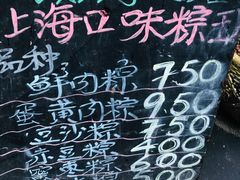 上海口味粽王
品种
鲜肉粽 7.50
蛋黄肉粽 9.50
豆沙粽 7.50
赤豆粽 600
蜜枣粽 800